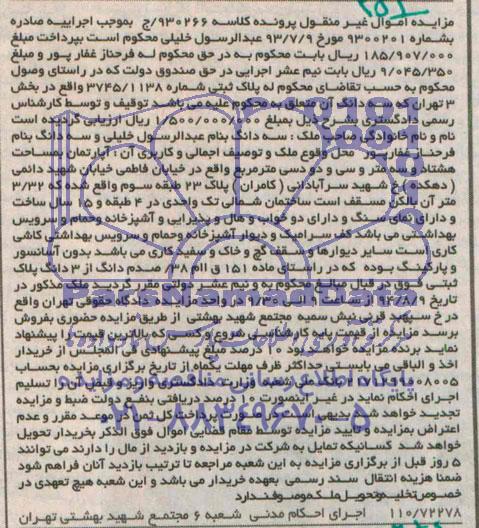 مزایده اموال غیر منقول پرونده کلاسه ۹۳۰۲۶۶/ج بموجب اجراییه صادره
بشماره ۹۳۰۰۲۰۱ مورخ ۹۳/۷/۹ عبدالرسول خلیلی محکوم است بپرداخت مبلغ
۱۸۵/۹۰۷/۰۰۰ ریال بابت محکوم به در حق محکوم له فرحناز غفار پور و مبلغ
۹/۰۴۵/۳۵۰ ریال بابت نیم عشر اجرایی در حق صندوق دولت که در راستای وصول
محکوم به حسب تقاضای محکوم له پلاک ثبتی شماره ۳۷۴۵/۱۱۳۸ واقع در بخش
۳ تهران که سه دانگ آن متعلق به محکوم علیه می باشد توقیف و توسط کارشناس
رسمی دادگستری بشرح ذیل بمبلغ ریال ارزیابی گردیده است
نام و نام خانوادگی صاحب ملک : سه دانگ بنام عبدالرسول خلیلی و سه دانگ بنام
فرحناز غفارپور محل وقوع ملک و توصیف اجمالی و کاربری آن : آپارتمان بمساحت
هشتاد و سه متر و سی و دو دسی مترمربع واقع در خیابان فاطمی خیابان شهید دائمی
( دهکده ) خ شهید سرآبادانی ( کامران ) پلاک ۲۳ طبقه سوم واقع شده که ۳/۳۲
متر آن بالکن مسقف است ساختمان شمالی تک واحدی در ۴ طبقه و ۱۵ سال ساخت
و دارای نمای سنگ و دارای دو خواب و هال و پذیرایی و آشپزخانه وحمام و سرویس
بهداشتی می باشد کف سرامیک و دیوار آشپزخانه وحمام و سرویس بهداشتی کاشی
کاری است سایر دیوارها و سقف گچ و خاک و سفید کاری می باشد بدون آسانسور
و پارکینگ بوده که در راستای ماده ۱۵۱ ق اام /۳۸ صدم دانگ از ۳ دانگ پلاک
ثبتی فوق در قبال مبالغ محکوم به و نیم عشر دولتی مقرر گردید ملک مذکور در
تاریخ ۹۴/۸/۹ از ساعت ۹ الی ۹/۳۰ در واحد مزایده دادگاه حقوقی تهران واقع
در خ سپهبد قرنی نبش سمیه مجتمع شهید بهشتی از طریق مزایده حضوری بفروش
برسد مزایده از قیمت پایه کارشناسی شروع و کسی که بالاترین قیمت را پیشنهاد
نماید برنده مزایده خواهد بود ۱۰ درصد مبلغ پیشنهادی فی المجلس از خریدار
اخذ و الباقی می بایستی حداکثر ظرف مهلت یکماه از تاریخ برگزاری مزایده بحساب
اجرای احکام نماید در غیر اینصورت ۱۰ درصد دریافتی بنفع دولت ضبط و مزایده
تجدید خواهد شد بدیهی است در صورت پرداخت کل ثمن در موعد مقرر و عدم
اعتراض بمزایده و تایید مزایده توسط مقام قضایی اموال فوق الذکر بخریدار تحویل
خواهد شد کسانیکه تمایل به شرکت در مزایده و بازدید از مال را دارند می توانند
۵ روز قبل از برگزاری مزایده به این شعبه مراجعه تا ترتیب بازدید آنان فراهم شود
ضمنا هزینه انتقال سند رسمی بعهده خریدار می باشد و این شعبه هیچ تعهدی در
خصوص تخلیه و تحویل ملک موصوف ندارد
۱۱۰/۷۲۲۷۸ اجرای احکام مدنی شعبه ۶ مجتمع شهید بهشتی تهران